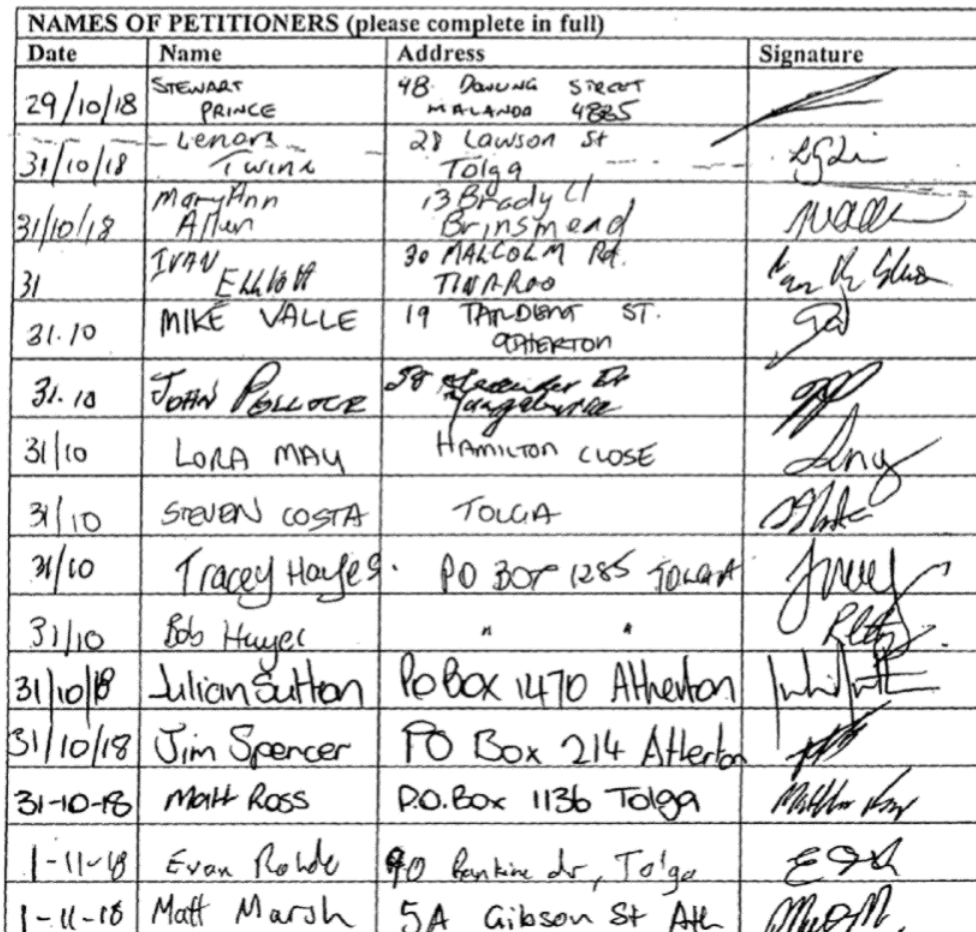 NAMES OF PETITIONERS (please complete in full)
Date Name Address Signature
29/10/18 STEWART PRINCE 48 STREET MALANDA 4885
31/10/18 Lenora Twine 28 Lawson St Tolga
31/10/18 MaryAnn Allen 13 Brady Cl Brinsmead
31 IVAN Elliott 30 MALCOLM Rd. TINAROO
31.10 MIKE VALLE 19 ST. ATHERTON
31.10 JOHN POLLOCK 58 Dr Yungaburra
31/10 LORA MAY HAMILTON CLOSE
31/10 STEVEN COSTA TOLGA
31/10 Tracey Hayes. PO BOX 1285 TOLGA
31/10 Bob Hayes " "
31/10/18 Julian Sutton PO Box 1470 Atherton
31/10/18 Jim Spencer PO Box 214 Atherton
31-10-18 Matt Ross P.O. Box 1136 Tolga
1-11-18 Evan Rohde Rankine dr, Tolga
1-11-18 Matt Marsh 5A Gibson St Ath